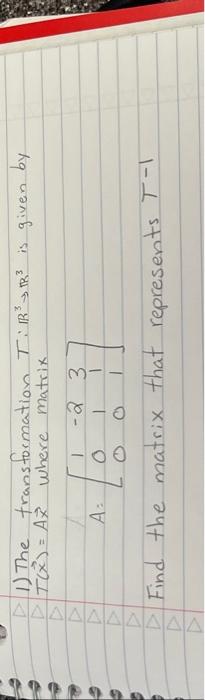 1) The transformation T: ℝ³→ℝ³ is given by
T(x⃗) = Ax⃗ where matrix
A: [ 1 -2 3
0 1 1
0 0 1 ]
Find the matrix that represents T-1